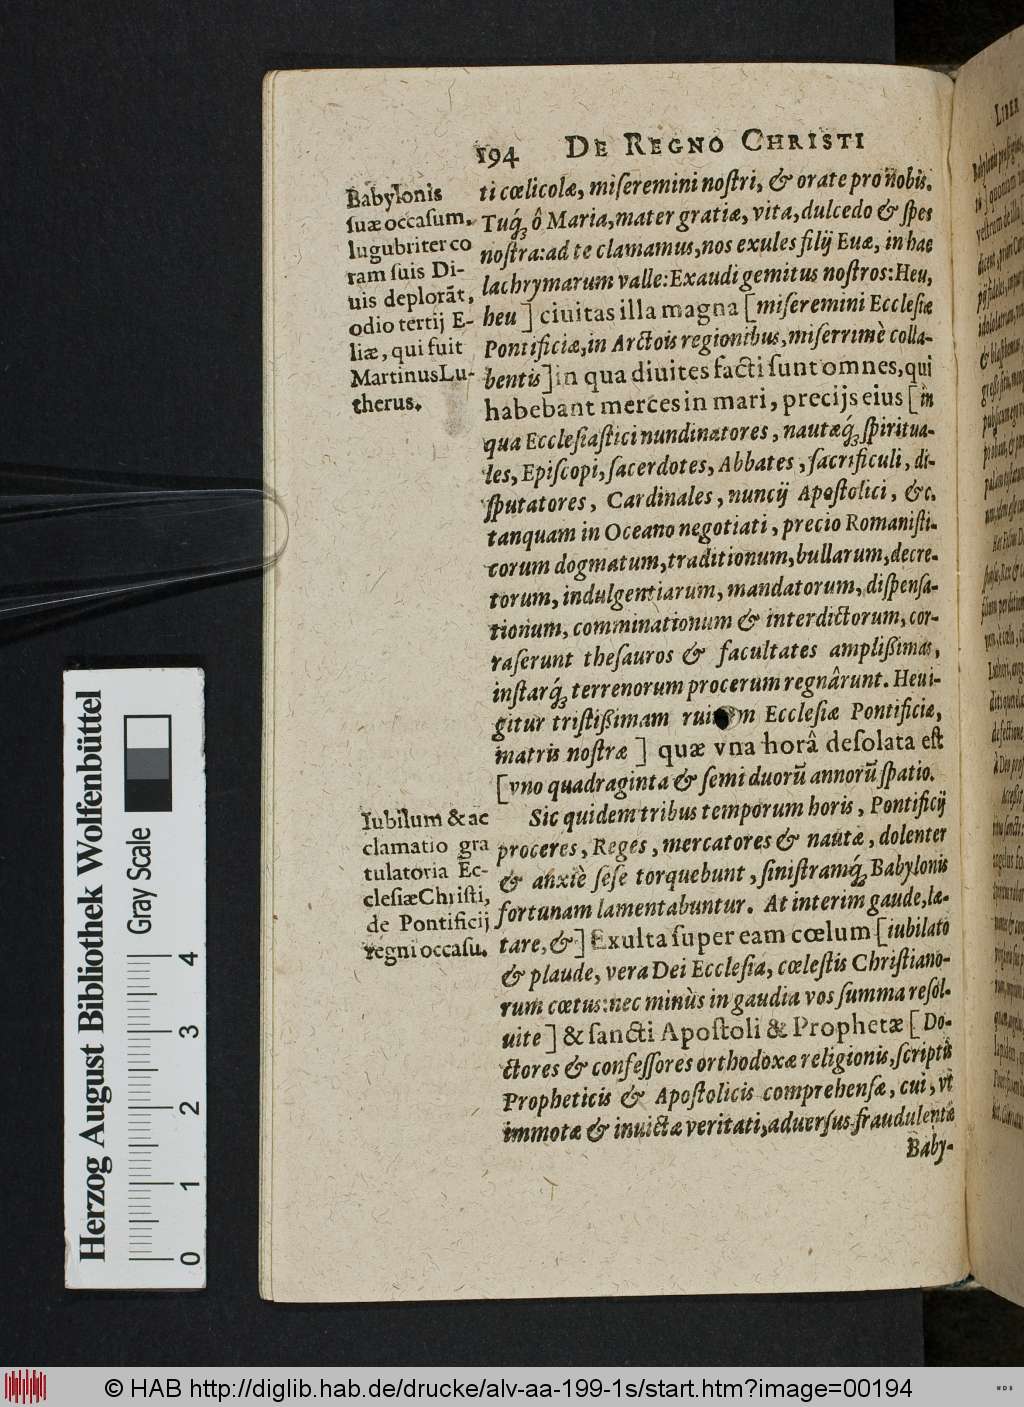 194 DE REGNO CHRISTI
Babylonis
suæ occasum,
lugubriter co
ram suis Di-
uis deplorāt,
odio tertij E-
liæ, qui fuit
Martinus Lu-
therus.
ti cœlicolæ, miseremini nostri, & orate pro nobis.
Tuq́ꝫ ô Maria, mater gratiæ, vita, dulcedo & spes
nostra: ad te clamamus, nos exules filij Euæ, in hac
lachrymarum valle: Exaudi gemitus nostros: Heu,
heu] ciuitas illa magna [miseremini Ecclesiæ
Pontificiæ, in Arctois regionibus, miserrimè colla-
bentis] in qua diuites facti sunt omnes, qui
habebant merces in mari, precijs eius [in
qua Ecclesiastici nundinatores, nautæq́ꝫ spiritua-
les, Episcopi, sacerdotes, Abbates, sacrificuli, di-
sputatores, Cardinales, nuncij Apostolici, &c.
tanquam in Oceano negotiati, precio Romanisti-
corum dogmatum, traditionum, bullarum, decre-
torum, indulgentiarum, mandatorum, dispensa-
tionum, comminationum & interdictorum, cor-
raserunt thesauros & facultates amplißimas,
instarq́ꝫ terrenorum procerum regnârunt. Heu i-
gitur tristißimam ruinam Ecclesiæ Pontificiæ,
matris nostræ] quæ vna horâ desolata est
[vno quadraginta & semi duorū annorū spatio.
Iubilum & ac
clamatio gra
tulatoria Ec-
clesiæ Christi,
de Pontificij
regni occasu.
Sic quidem tribus temporum horis, Pontificij
proceres, Reges, mercatores & nautæ, dolenter
& anxiè sese torquebunt, sinistramq́ꝫ Babylonis
fortunam lamentabuntur. At interim gaude, læ-
tare, &] Exulta super eam cœlum [iubilato
& plaude, vera Dei Ecclesia, cœlestis Christiano-
rum cœtus: nec minùs in gaudia vos summa resol-
uite] & sancti Apostoli & Prophetæ [Do-
ctores & confessores orthodoxæ religionis, scriptis
Propheticis & Apostolicis comprehensæ, cui, vt
immotæ & inuictæ veritati, aduersus fraudulentæ
Baby-
LIBER
Herzog August Bibliothek Wolfenbüttel
Gray Scale
0 1 2 3 4
© HAB http://diglib.hab.de/drucke/alv-aa-199-1s/start.htm?image=00194
WDB